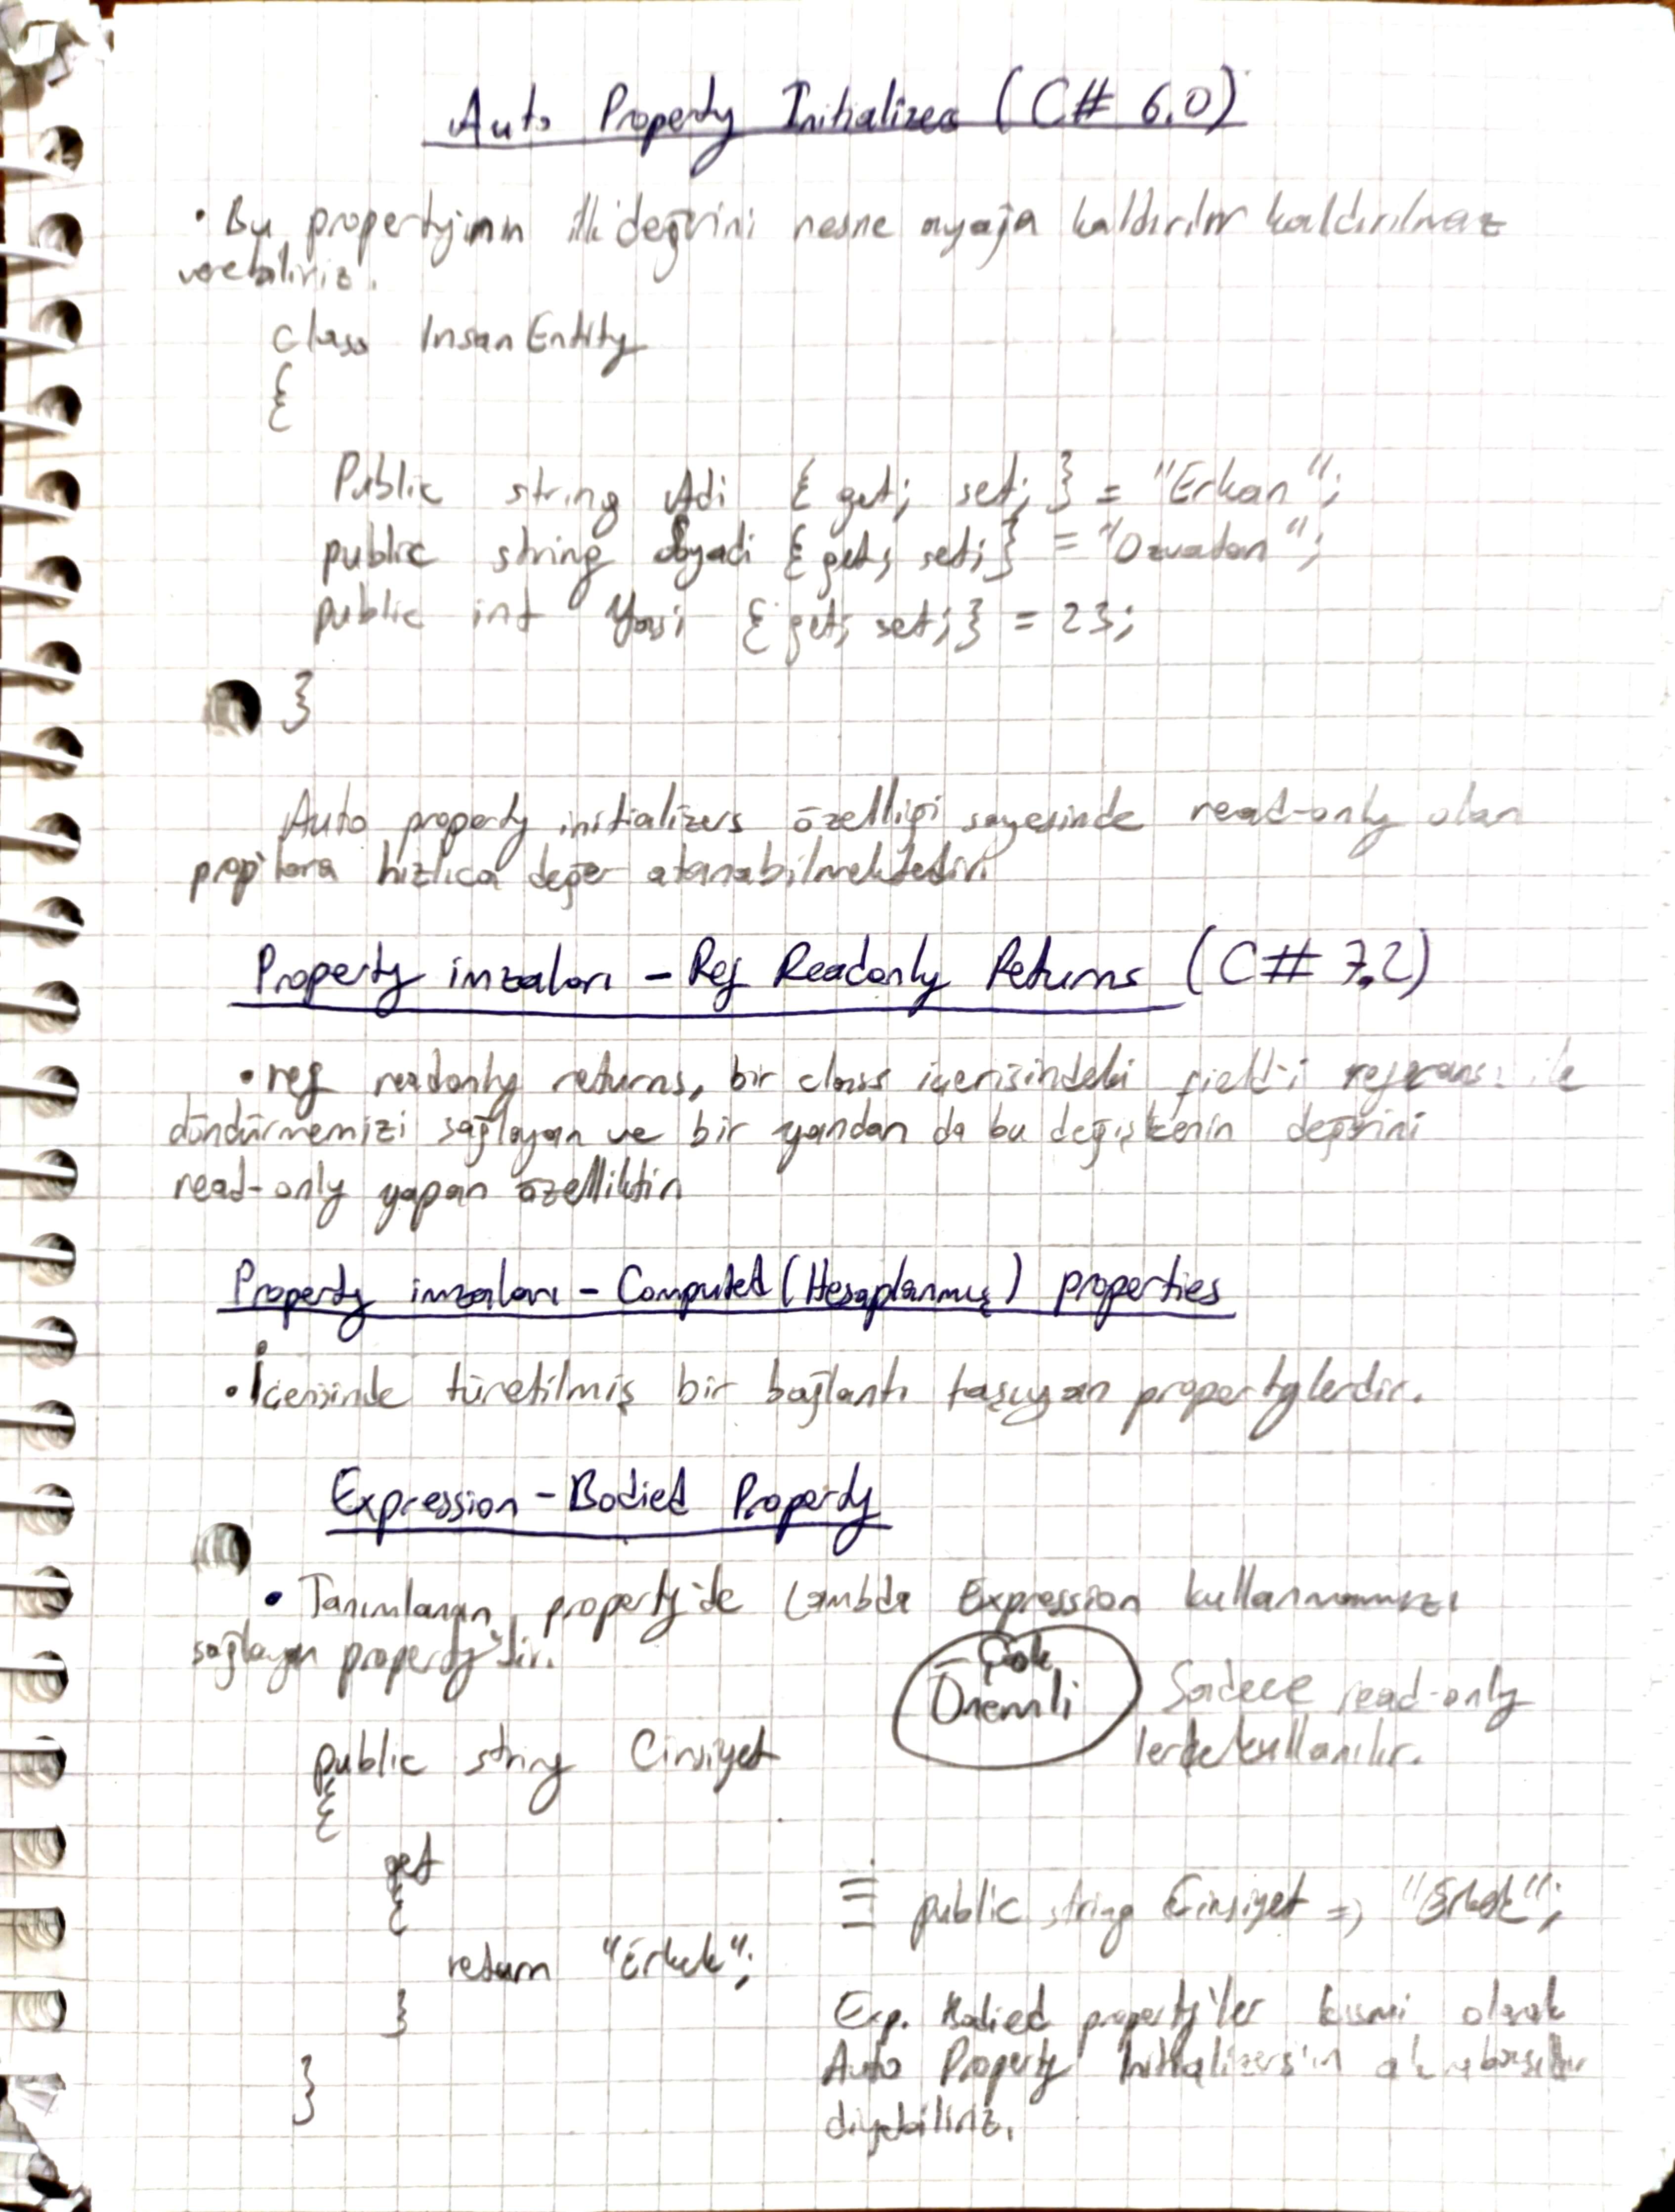 Auto Property Initializers (C# 6.0)
• Bu property'nin ilk değerini nesne ayağa kaldırılır kaldırılmaz
verebiliriz.
class InsanEntity
{
Public string Adi { get; set; } = "Erkan";
public string Soyadi { get; set; } = "Ozvatan";
public int Yasi { get; set; } = 23;
}
Auto property initializers özelliği sayesinde read-only olan
prop'lara hızlıca değer atanabilmektedir.
Property imzaları - Ref Readonly Returns (C# 7.2)
• ref readonly returns, bir class içerisindeki field'i referansı ile
döndürmemizi sağlayan ve bir yandan da bu değişkenin değerini
read-only yapan özelliktir.
Property imzaları - Computed (Hesaplanmış) properties
• İçerisinde türetilmiş bir bağlantı taşıyan propertylerdir.
Expression - Bodied Property
• Tanımlanan property'de Lambda Expression kullanmamızı
sağlayan property'dir.
Çok
Önemli
Sadece read-only
lerde kullanılır.
public string Cinsiyet
{
get
{
≡ public string Cinsiyet => "Erkek";
return "Erkek";
}
Exp. Bodied property'ler kısmi olarak
Auto Property Initializers'ın akrabasıdır
}
diyebiliriz.